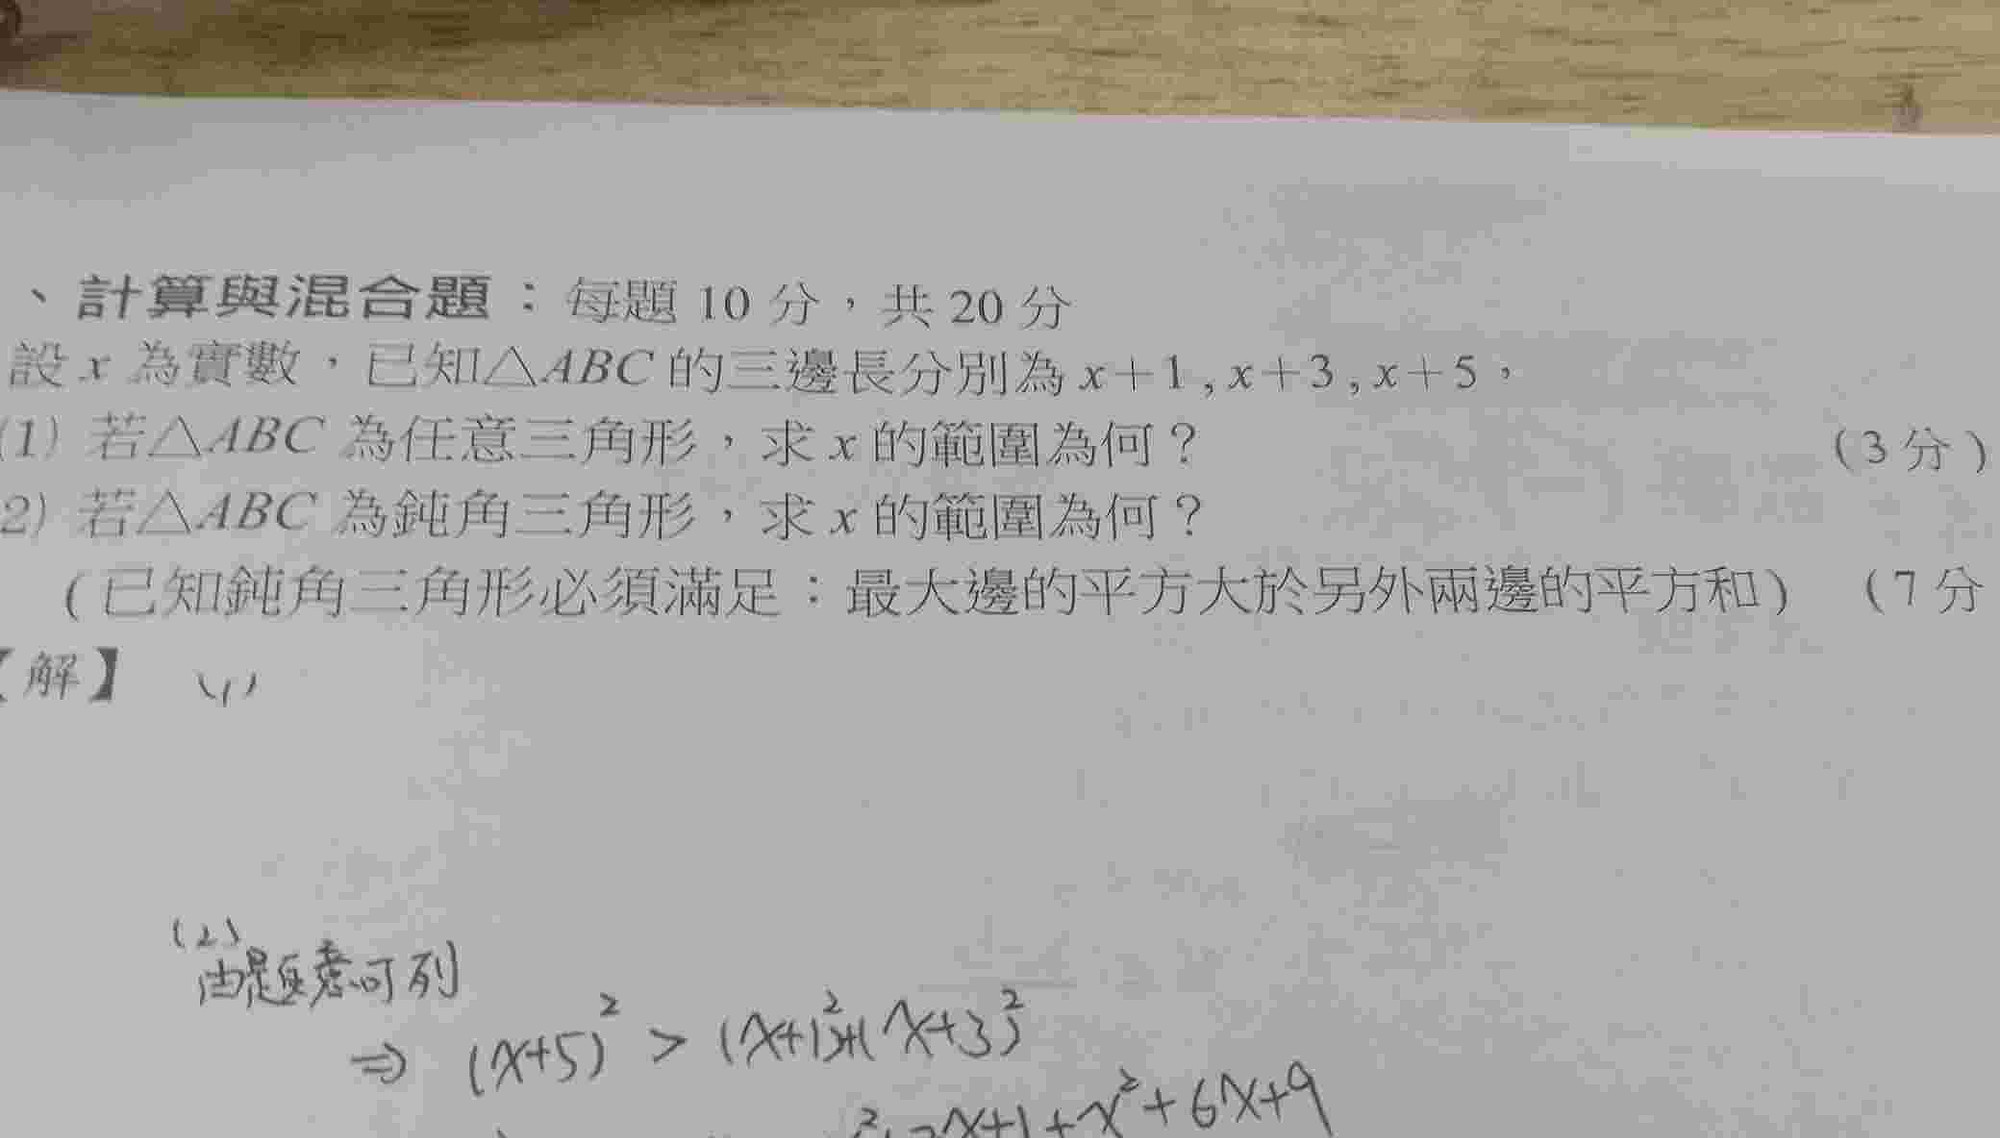 、計算與混合題：每題 10 分，共 20 分
設 x 為實數，已知△ABC 的三邊長分別為 x+1 , x+3 , x+5，
(1) 若△ABC 為任意三角形，求 x 的範圍為何？ (3 分)
2) 若△ABC 為鈍角三角形，求 x 的範圍為何？
(已知鈍角三角形必須滿足：最大邊的平方大於另外兩邊的平方和) (7 分
【解】 (1)
(2)
由題意可列
⇒ (x+5)² > (x+1)²+(x+3)²
²+2x+1+x²+6x+9